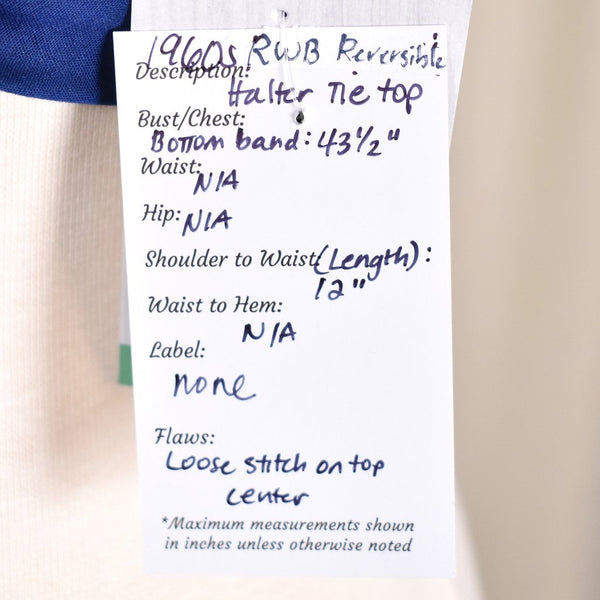 1960s RWB Reversible
Description:
Halter Tie top
Bust/Chest:
Bottom band: 43 1/2"
Waist:
N/A
Hip: N/A
Shoulder to Waist (Length):
12"
Waist to Hem:
N/A
Label:
none
Flaws:
Loose stitch on top
center
*Maximum measurements shown
in inches unless otherwise noted